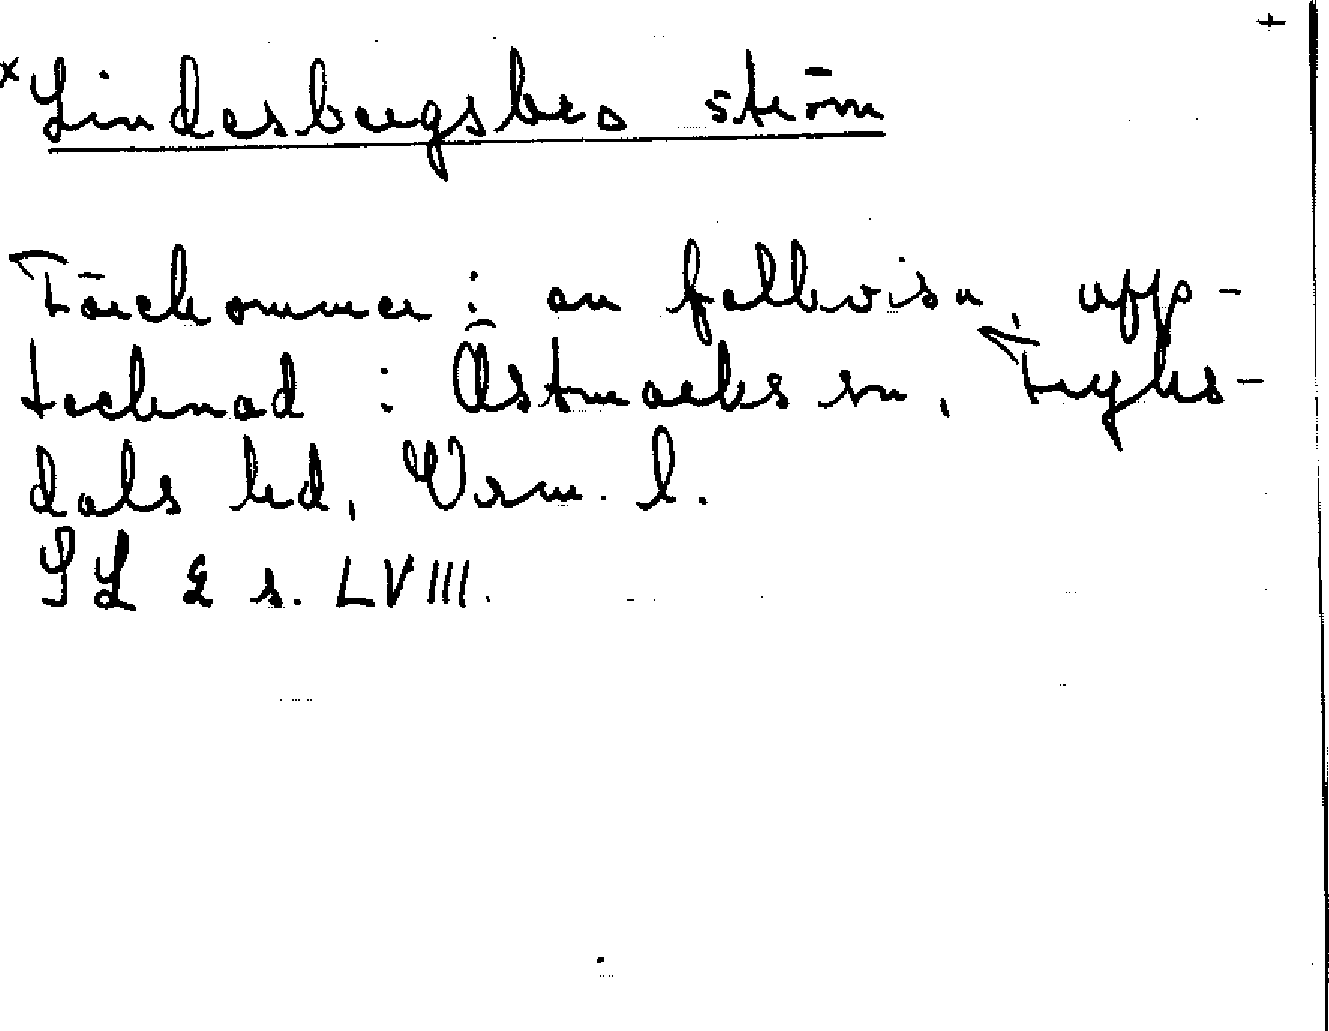 +
× Lindesbergsbro ström
Förekommer i en folkvisa, upp-
tecknad i Östmarks sn, Fryks-
dals hd, Värm. l.
SL 2 s. LVIII.